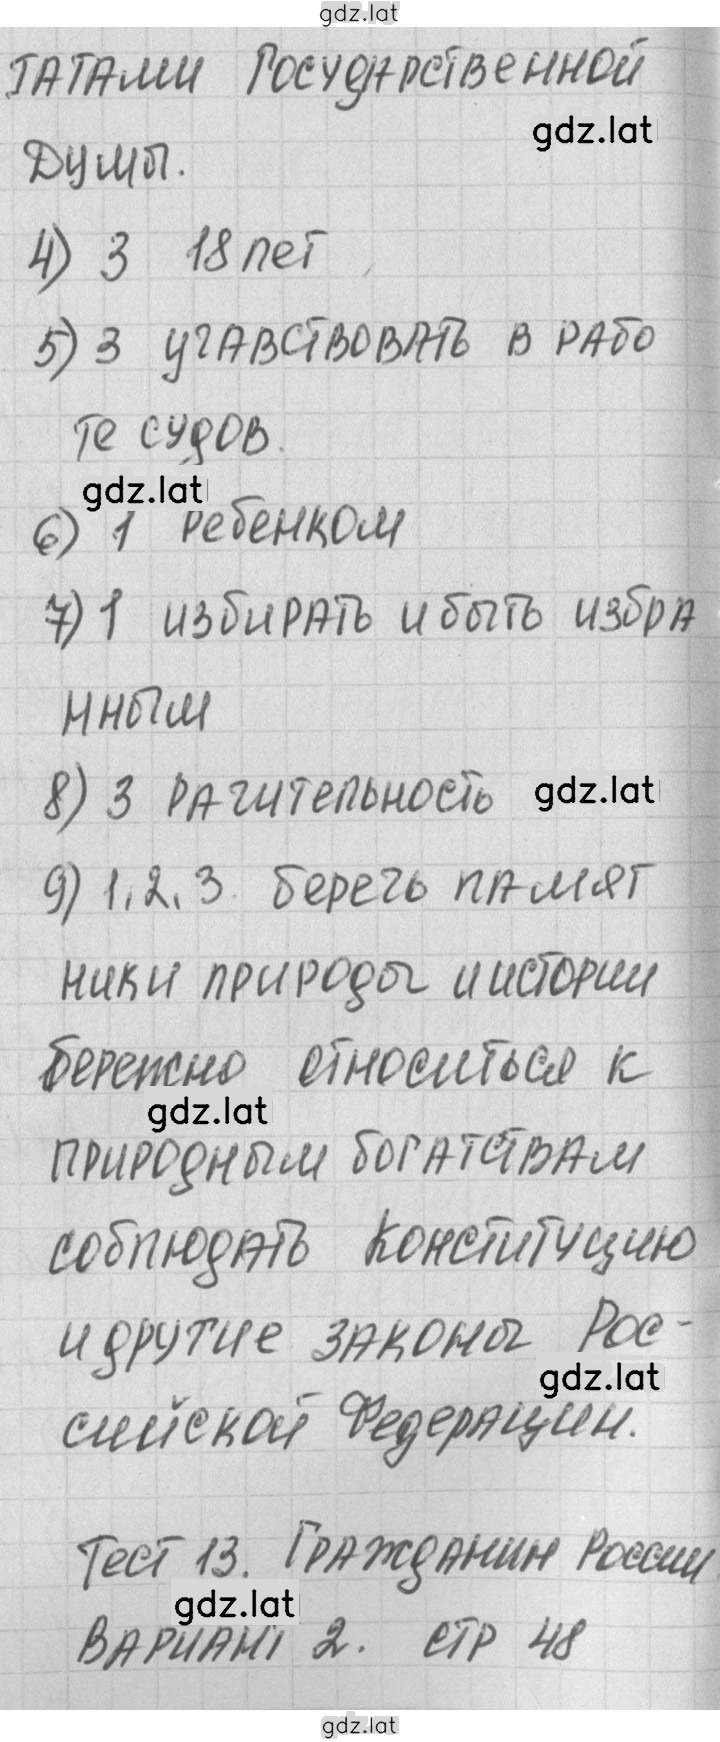 gdz.lat
ТАТАМИ ГОСУДАРСТВЕННОЙ
gdz.lat
ДУМЫ.
4) 3 18 лет
5) 3 УЧАВСТВОВАТЬ В РАБО
ТЕ СУДОВ.
gdz.lat
6) 1 РЕБЕНКОМ
7) 1 ИЗБИРАТЬ И БЫТЬ ИЗБРА
ННЫМ
8) 3 РАЧИТЕЛЬНОСТЬ gdz.lat
9) 1, 2, 3. БЕРЕЧЬ ПАМЯТ
НИКИ ПРИРОДЫ И ИСТОРИИ
БЕРЕЖНО ОТНОСИТЬСЯ К
gdz.lat
ПРИРОДНЫМ БОГАТСТВАМ
СОБЛЮДАТЬ КОНСТИТУЦИЮ
И ДРУГИЕ ЗАКОНЫ РОС-
gdz.lat
СИЙСКОЙ ФЕДЕРАЦИИ.
ТЕСТ 13. ГРАЖДАНИН РОССИИ.
gdz.lat
ВАРИАНТ 2. СТР 48
gdz.lat